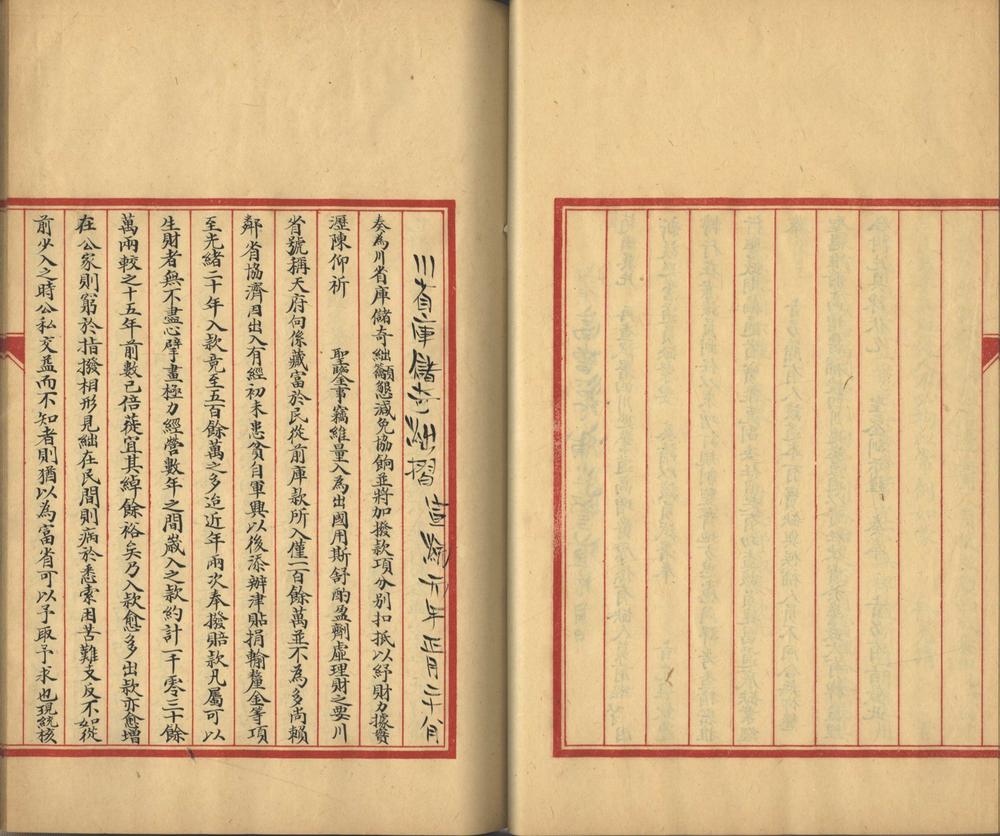 川省庫儲奇絀摺 宣統元年正月二十八日
奏為川省庫儲奇絀籲懇減免協餉並將加撥款項分別扣抵以紓財力據實
瀝陳仰祈 聖鑒事竊維量入為出國用斯舒酌盈劑虛理財之要川
省號稱天府向係藏富於民從前庫款所入僅一百餘萬並不為多尚賴
鄰省協濟因出入有經初未患貧自軍興以後添辦津貼捐輸釐金等項
至光緒二十年入款竟至五百餘萬之多迨近年兩次奉撥賠款凡屬可以
生財者無不盡心擘畫極力經營數年之間歲入之款約計一千零三十餘
萬兩較之十五年前數已倍蓰宜其綽餘裕矣乃入款愈多出款亦愈增
在公家則窮於指撥相形見絀在民間則病於悉索困苦難支反不如從
前少入之時公私交益而不知者則猶以為富省可以予取予求也現統核